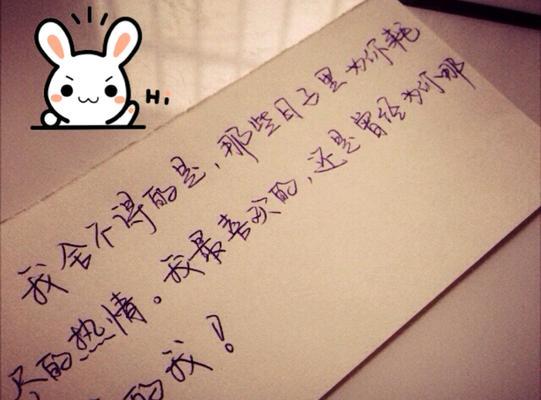 Hi
我舍不得的是，那些日子里为你耗
尽的热情。我最喜欢的，还是曾经为你那
的我！